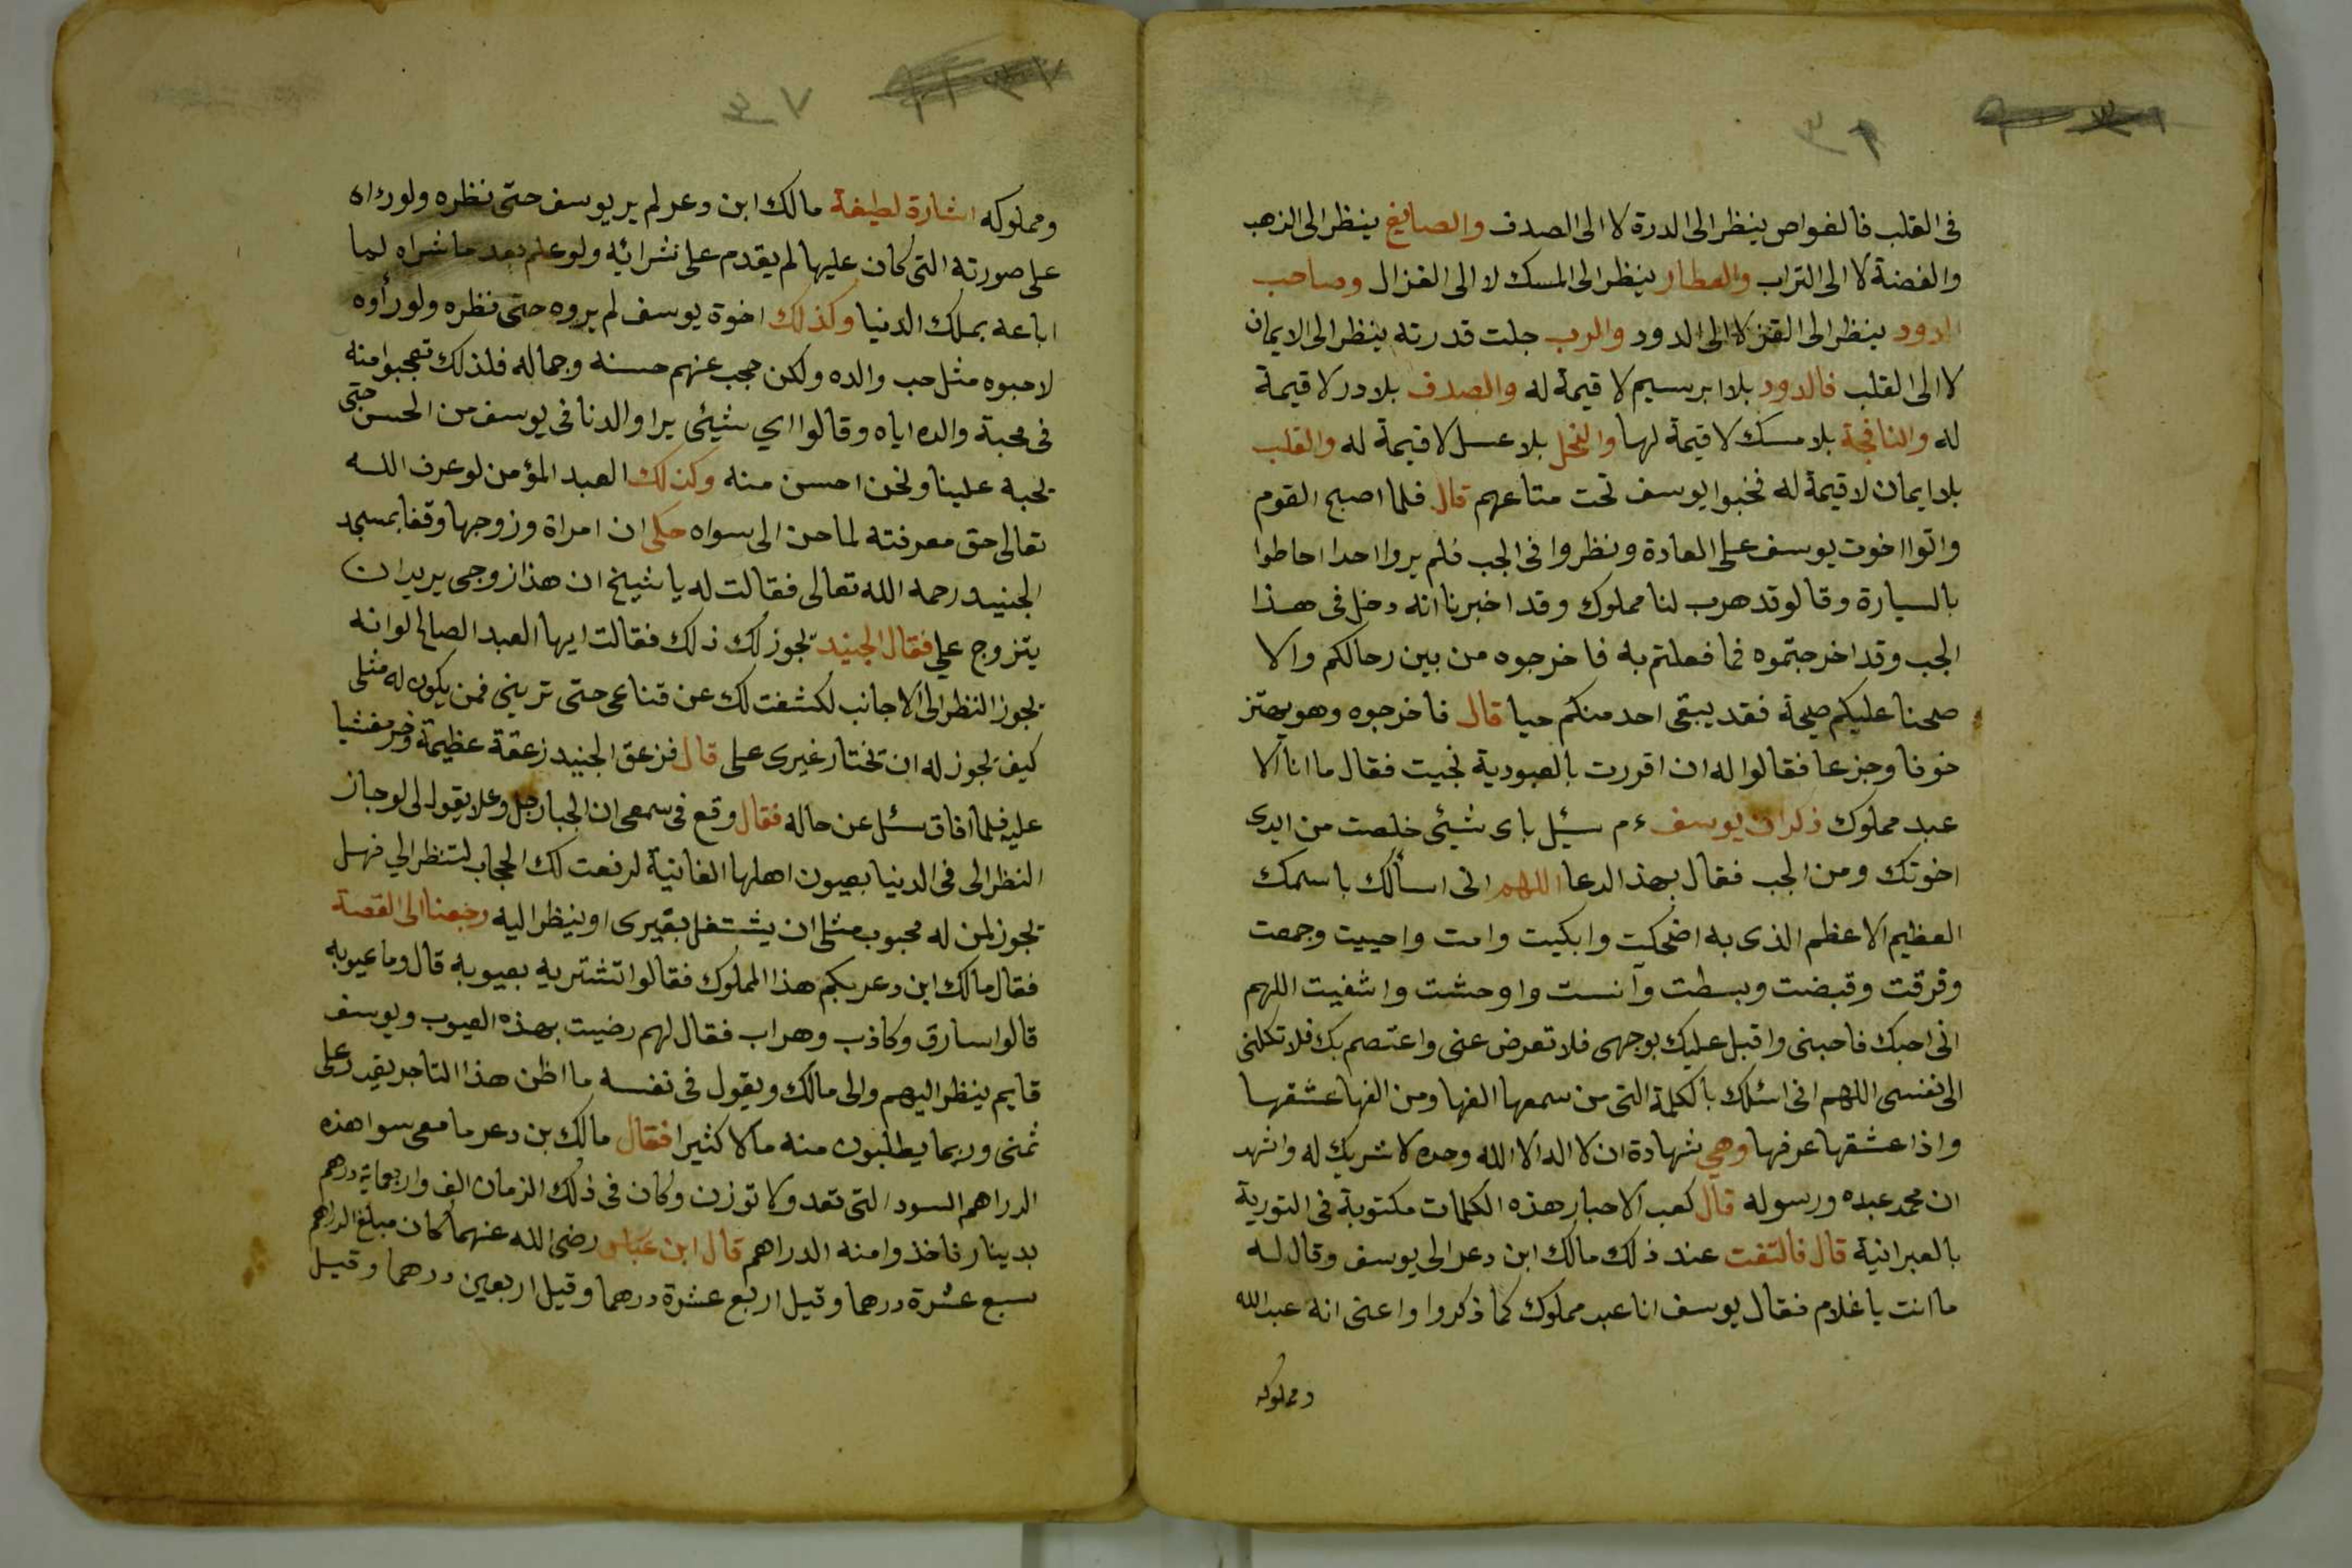 ٣٦
فى القلب فالغواص ينظر الى الدرة لا الى الصدف والصايغ ينظر الى الذهب
والفضة لا الى التراب والعطار ينظر الى المسك لا الى الغزال وصاحب
الدود ينظر الى القز لا الى الدود والرب جلت قدرته ينظر الى الايمان
لا الى القلب فالدود بلا ابرسيم لا قيمة له والصدف بلا در لا قيمة
له والنافجة بلا مسك لا قيمة لها والنحل بلا عسل لا قيمة له والقلب
بلا ايمان لا قيمة له فخبوا يوسف تحت متاعهم قال فلما اصبح القوم
واتوا اخوت يوسف على العادة ونظروا فى الجب فلم يروا احدا احاطوا
بالسيارة وقالو قد هرب لنا مملوك وقد اخبرنا انه دخل فى هذا
الجب وقد اخرجتموه فما فعلتم به فاخرجوه من بين رحالكم والا
صحنا عليكم صيحة فقد يبقى احد منكم حيا قال فاخرجوه وهو يهتز
خوفا وجزعا فقالوا له ان اقررت بالعبودية نجيت فقال ما انا الا
عبد مملوك ذكر ان يوسف ءم سئيل باى شيئى خلصت من ايدى
اخوتك ومن الجب فقال بهذ الدعا اللهم انى اسألك باسمك
العظيم الاعظم الذى به اضحكت وابكيت وامت واحييت وجمعت
وفرقت وقبضت وبسطت وآنست واوحشت واشفيت اللهم
انى احبك فاحبنى واقبل عليك بوجهى فلا تعرض عنى واعتصم بك فلا تكلنى
الى نفسى اللهم انى اسئلك بالكلمة التى من سمعها الفها ومن الفها عشقها
واذا عشقها عرفها وهى شهادة ان لا اله الا الله وحده لا شريك له واشهد
ان محمد عبده ورسوله قال كعب الاحبار هذه الكلمات مكتوبة فى التورية
بالعبرانية قال فالتفت عند ذلك مالك ابن دعر الى يوسف وقال له
ما انت يا غلام فقال يوسف انا عبد مملوك كما ذكروا واعنى انه عبد الله
ومملوكه
٣٧
ومملوكه اشارة لطيفة مالك ابن دعر لم ير يوسف حتى نظره ولو راه
على صورته التى كان عليها لم يقدم على شرائه ولو علم بعد ما شراه لما
اباعه بملك الدنيا وكذلك اخوة يوسف لم يروه حتى نظره ولو رأوه
لاحبوه مثل حب والده ولكن حجب عنهم حسنه وجماله فلذلك تعجبوا منه
فى محبة والده اياه وقالوا اي شيئى يرا والدنا فى يوسف من الحسن حتى
يحبه علينا ونحن احسن منه وكذلك العبد المؤمن لو عرف الله
تعالى حق معرفته لما حن الى سواه حكى ان امراة وزوجها وقفا بمسجد
الجنيد رحمه الله تعالى فقالت له يا شيخ ان هذا زوجى يريد ان
يتزوج على فقال الجنيد يجوز لك ذلك فقالت ايها العبد الصالح لو انه
يجوز النظر الى الاجانب لكشفت لك عن قناعى حتى ترينى فمن يكون له مثلى
كيف يجوز له ان تختار غيرى على قال فزعق الجنيد زعقة عظيمة وخر مغشيا
عليه فلما افاق سئل عن حاله فقال وقع فى سمعى ان الجبار جل وعلا يقول لى لو جاز
النظر الى فى الدنيا بعيون اهلها الفانية لرفعت لك الحجاب لتنظر الي فهل
يجوز لمن له محبوب مثلى ان يشتغل بغيرى او ينظر اليه رجعنا الى القصة
فقال مالك ابن دعر بكم هذا المملوك فقالوا تشتريه بعيوبه قال وما عيوبه
قالوا سارق وكاذب وهراب فقال لهم رضيت بهذه العيوب ويوسف
قايم ينظر اليهم والى مالك ويقول فى نفسه ما اظن هذا التاجر يقدر على
ثمنى وربما يطلبون منه مالا كثيرا فقال مالك بن دعر ما معى سوا هذه
الدراهم السود التى تعد ولا توزن وكان فى ذلك الزمان الف واربعماية درهم
بدينار فاخذوا منه الدراهم قال ابن عباس رضى الله عنهما كان مبلغ الدراهم
سبع عشرة درهما وقيل اربع عشرة درهما وقيل اربعين درهما وقيل